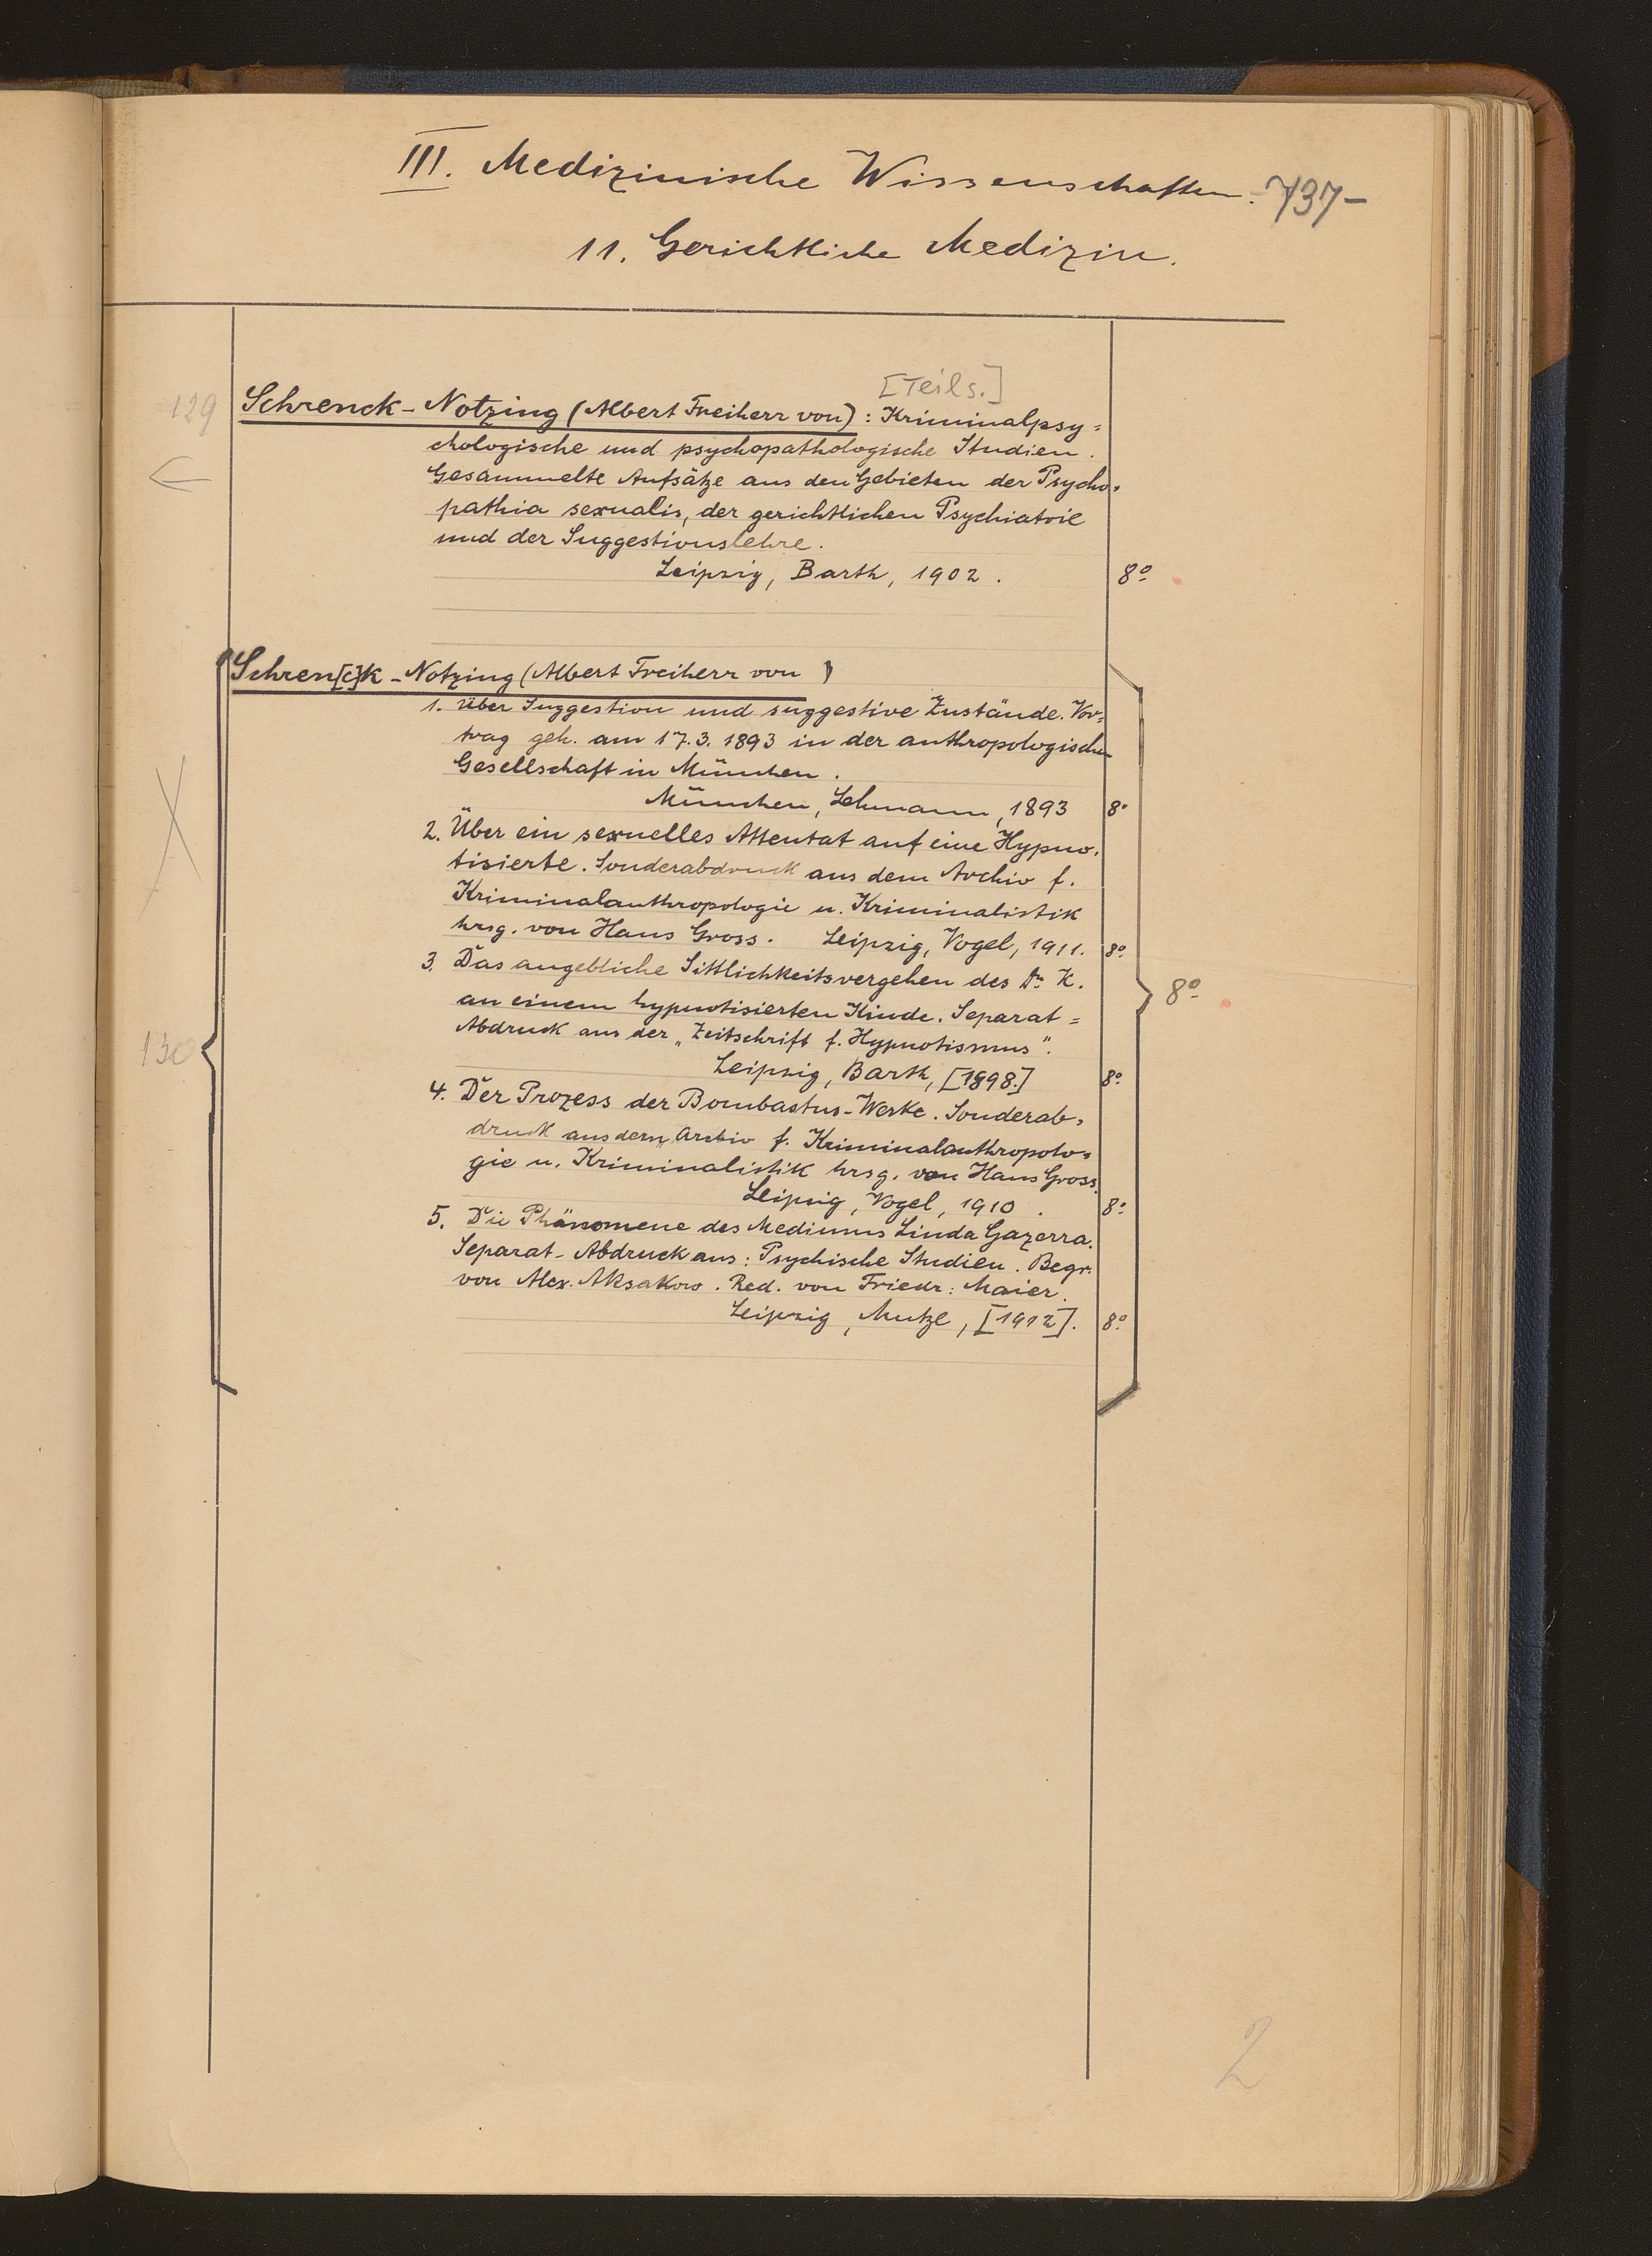 III. Medizinische Wissenschaften. 737-
11. Gerichtliche Medizin.
[Teils.]
129 Schrenck-Notzing (Albert Freiherr von): Kriminalpsy=
chologische und psychopathologische Studien.
Gesammelte Aufsätze aus den Gebieten der Psycho=
pathia sexualis, der gerichtlichen Psychiatrie
und der Suggestionslehre.
Leipzig, Barth, 1902. 8º
Schren[c]k-Notzing (Albert Freiherr von)
1. Über Suggestion und suggestive Zustände. Vor=
trag geh. am 17.3.1893 in der anthropologischen
Gesellschaft in München.
München, Lehmann, 1893 8º
2. Über ein sexuelles Attentat auf eine Hypno=
tisierte. Sonderabdruck aus dem Archiv f.
Kriminalanthropologie u. Kriminalistik
hrsg. von Hans Gross. Leipzig, Vogel, 1911. 8º
3. Das angebliche Sittlichkeitsvergehen des Dr K.
an einem hypnotisierten Kinde. Separat=
8º
Abdruck aus der „Zeitschrift f. Hypnotismus".
130
Leipzig, Barth, [1898.] 8º
4. Der Prozess der Bombastus-Werke. Sonderab=
druck aus dem Archiv f. Kriminalanthropolo=
gie u. Kriminalistik hrsg. von Hans Gross.
Leipzig, Vogel, 1910. 8º
5. Die Phänomene des Mediums Linda Gazerra.
Separat-Abdruck aus: Psychische Studien. Begr.
von Alex. Aksakow. Red. von Friedr: Maier.
Leipzig, Mutze, [1912]. 8º
2